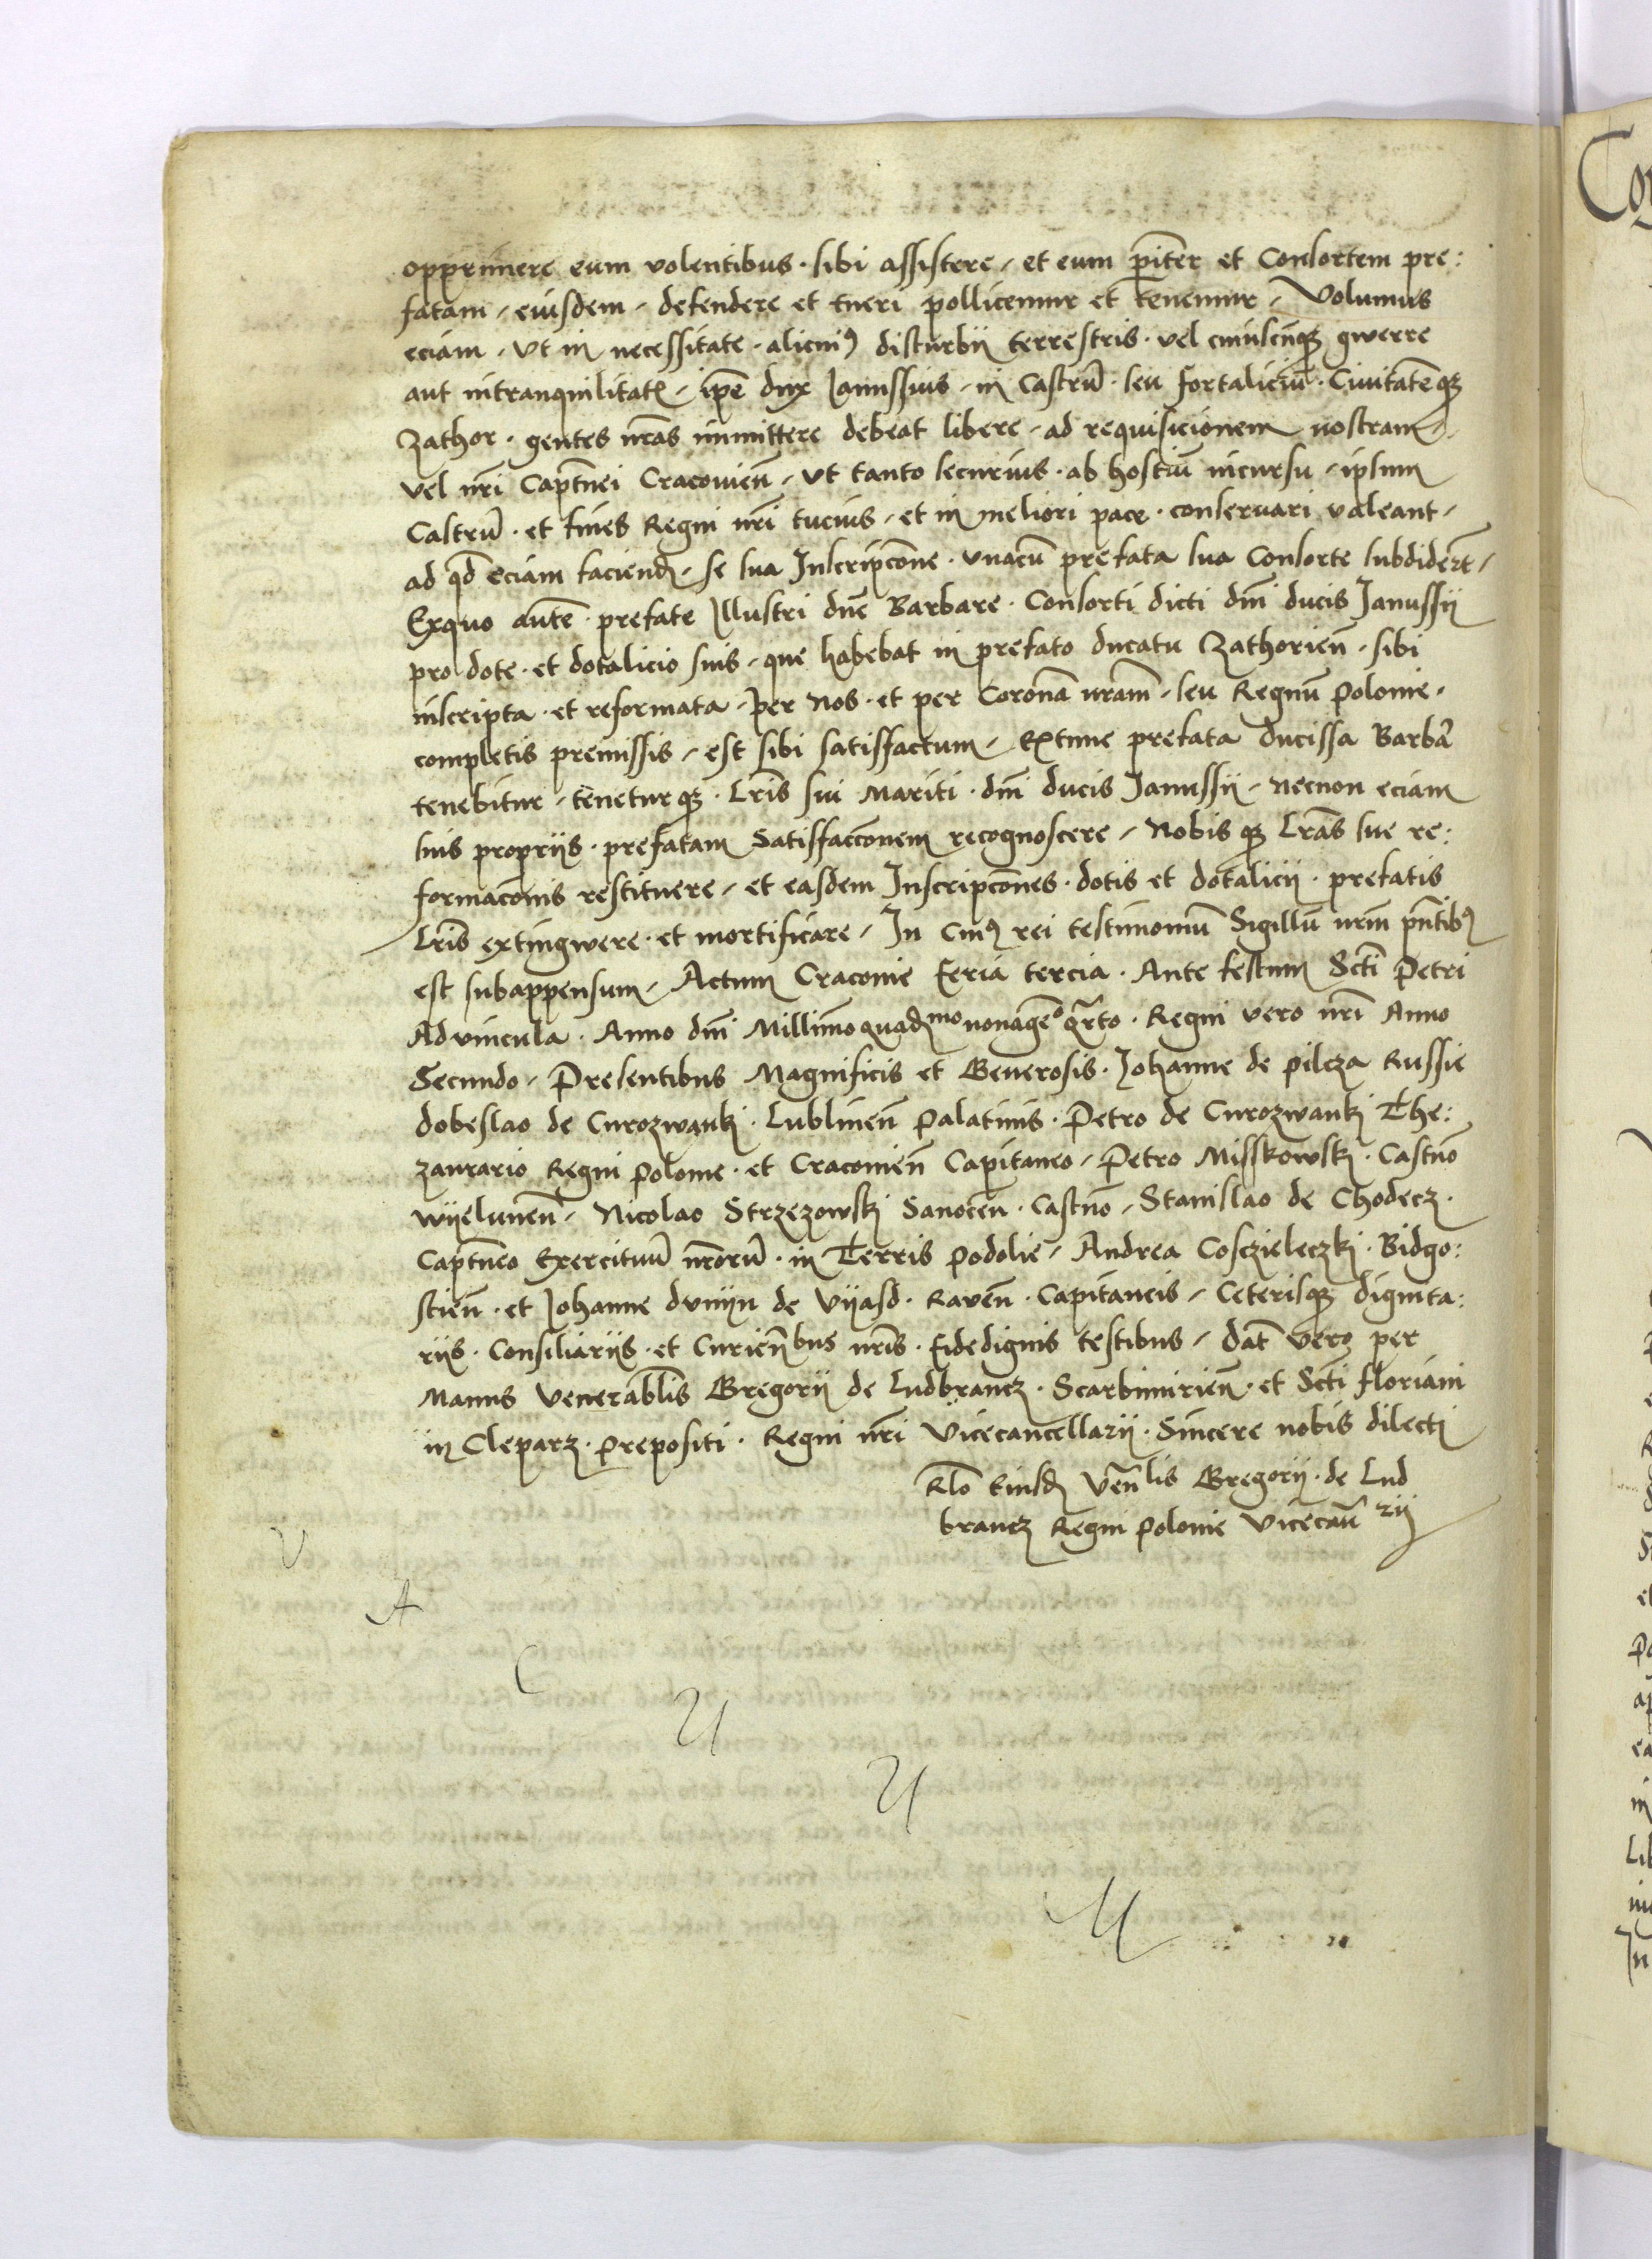 opprimere eum volentibus · sibi assistere / et eum pariter et Consortem pre:
fatam / eiusdem / defendere et tueri pollicemur et tenemur / Volumus
eciam / Vt in necessitate · alicuiꝰ disturbii terrestris · vel cuiuscunqꝫ gwerre
aut intranquilitatꝭ / ip̄e dux Janussius / in Castrū · seu fortaliciū · Ciuitatēqꝫ
Zathor · gentes nr̄as immittere debeat libere / ad requisicionem nostram /
vel nr̄i Captn̄ei Cracouien̄ / Vt tanto securius · ab hostiū incursu / ipsum
Castrū · et fines Regni nr̄i tucius / et in meliori pace · conseruari valeant /
ad qd̄ eciam faciend̄ / se sua Inscripcōne · vnacū prefata sua Consorte subdider̄t /
Exquo autē · prefate Illustri dn̄e Barbare · Consorti dicti dn̄i ducis Janussii
pro dote · et dotalicio suis / que habebat in prefato ducatu Zathorien̄ · sibi
inscripta · et reformata / per Nos · et per Coronā nr̄am · seu Regnū Polonie ·
completis premissis / est sibi satisfactum / Extunc prefata ducissa Barbā
tenebitur / teneturqꝫ · Lr̄is sui Mariti · dn̄i ducis Janussii / necnon eciam
suis propriis · prefatam Satisfaccōnem recognoscere / Nobisqꝫ Lr̄as sue re:
formacōnis restituere / et easdem Inscripcōnes · dotis et dotalicii · prefatis
Lr̄is extingwere · et mortificare / In Cuiꝰ rei testimoniū Sigillū nr̄m pn̄tibꝰ
est subappensum / Actum Cracouie feria tercia · Ante festum Scti Petri
Advincula · Anno dn̄i Millimo quadmo nonagēo qrto · Regni vero nr̄i Anno
Secundo / Presentibus Magnificis et Generosis · Johanne de pilcza Russie
dobeslao de Curozwanki · Lublinen̄ Palatinis · Petro de Curozwanki The:
zaurario Regni Polonie · et Cracouien̄ Capitaneo / Petro Misskowski · Castn̄o
wyelunen̄ / Nicolao Strzezowski Sanocen̄ · Castn̄o / Stanislao de Chodecz ·
Captn̄eo Exercituū nr̄orū · in Terris Podolie / Andrea Cosczieleczki · Bidgo:
stien̄ · et Johanne dvnyn de Vyasd · Raven̄ · Capitaneis / Ceterisqꝫ dignita:
riis · Consiliariis · et Curien̄bus nr̄is · fidedignis testibus / dat̄ vero per
Manus Venerablīs Gregorii de Ludbrancz · Scarbimirien̄ · et Scti floriani
in Cleparz · prepositi · Regni nr̄i Vicecancellarii · Sincere nobis dilecti
Rl̄o Eiusd̄ Ven̄lis Gregorii · de Lud
brancz Regni Polonie Vicecan̄rii
V
A
C
U
U
M